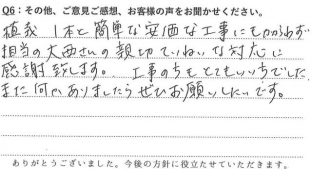 Q6：その他、ご意見ご感想、お客様の声をお聞かせください。
植栽 1本と簡単な安価な工事にもかかわらず
担当の大西さんの親切ていねいな対応に
感謝致します。 工事のちもとてもいいちでした
また何かありましたらぜひお願いしたいです。
ありがとうございました。今後の方針に役立たせていただきます。